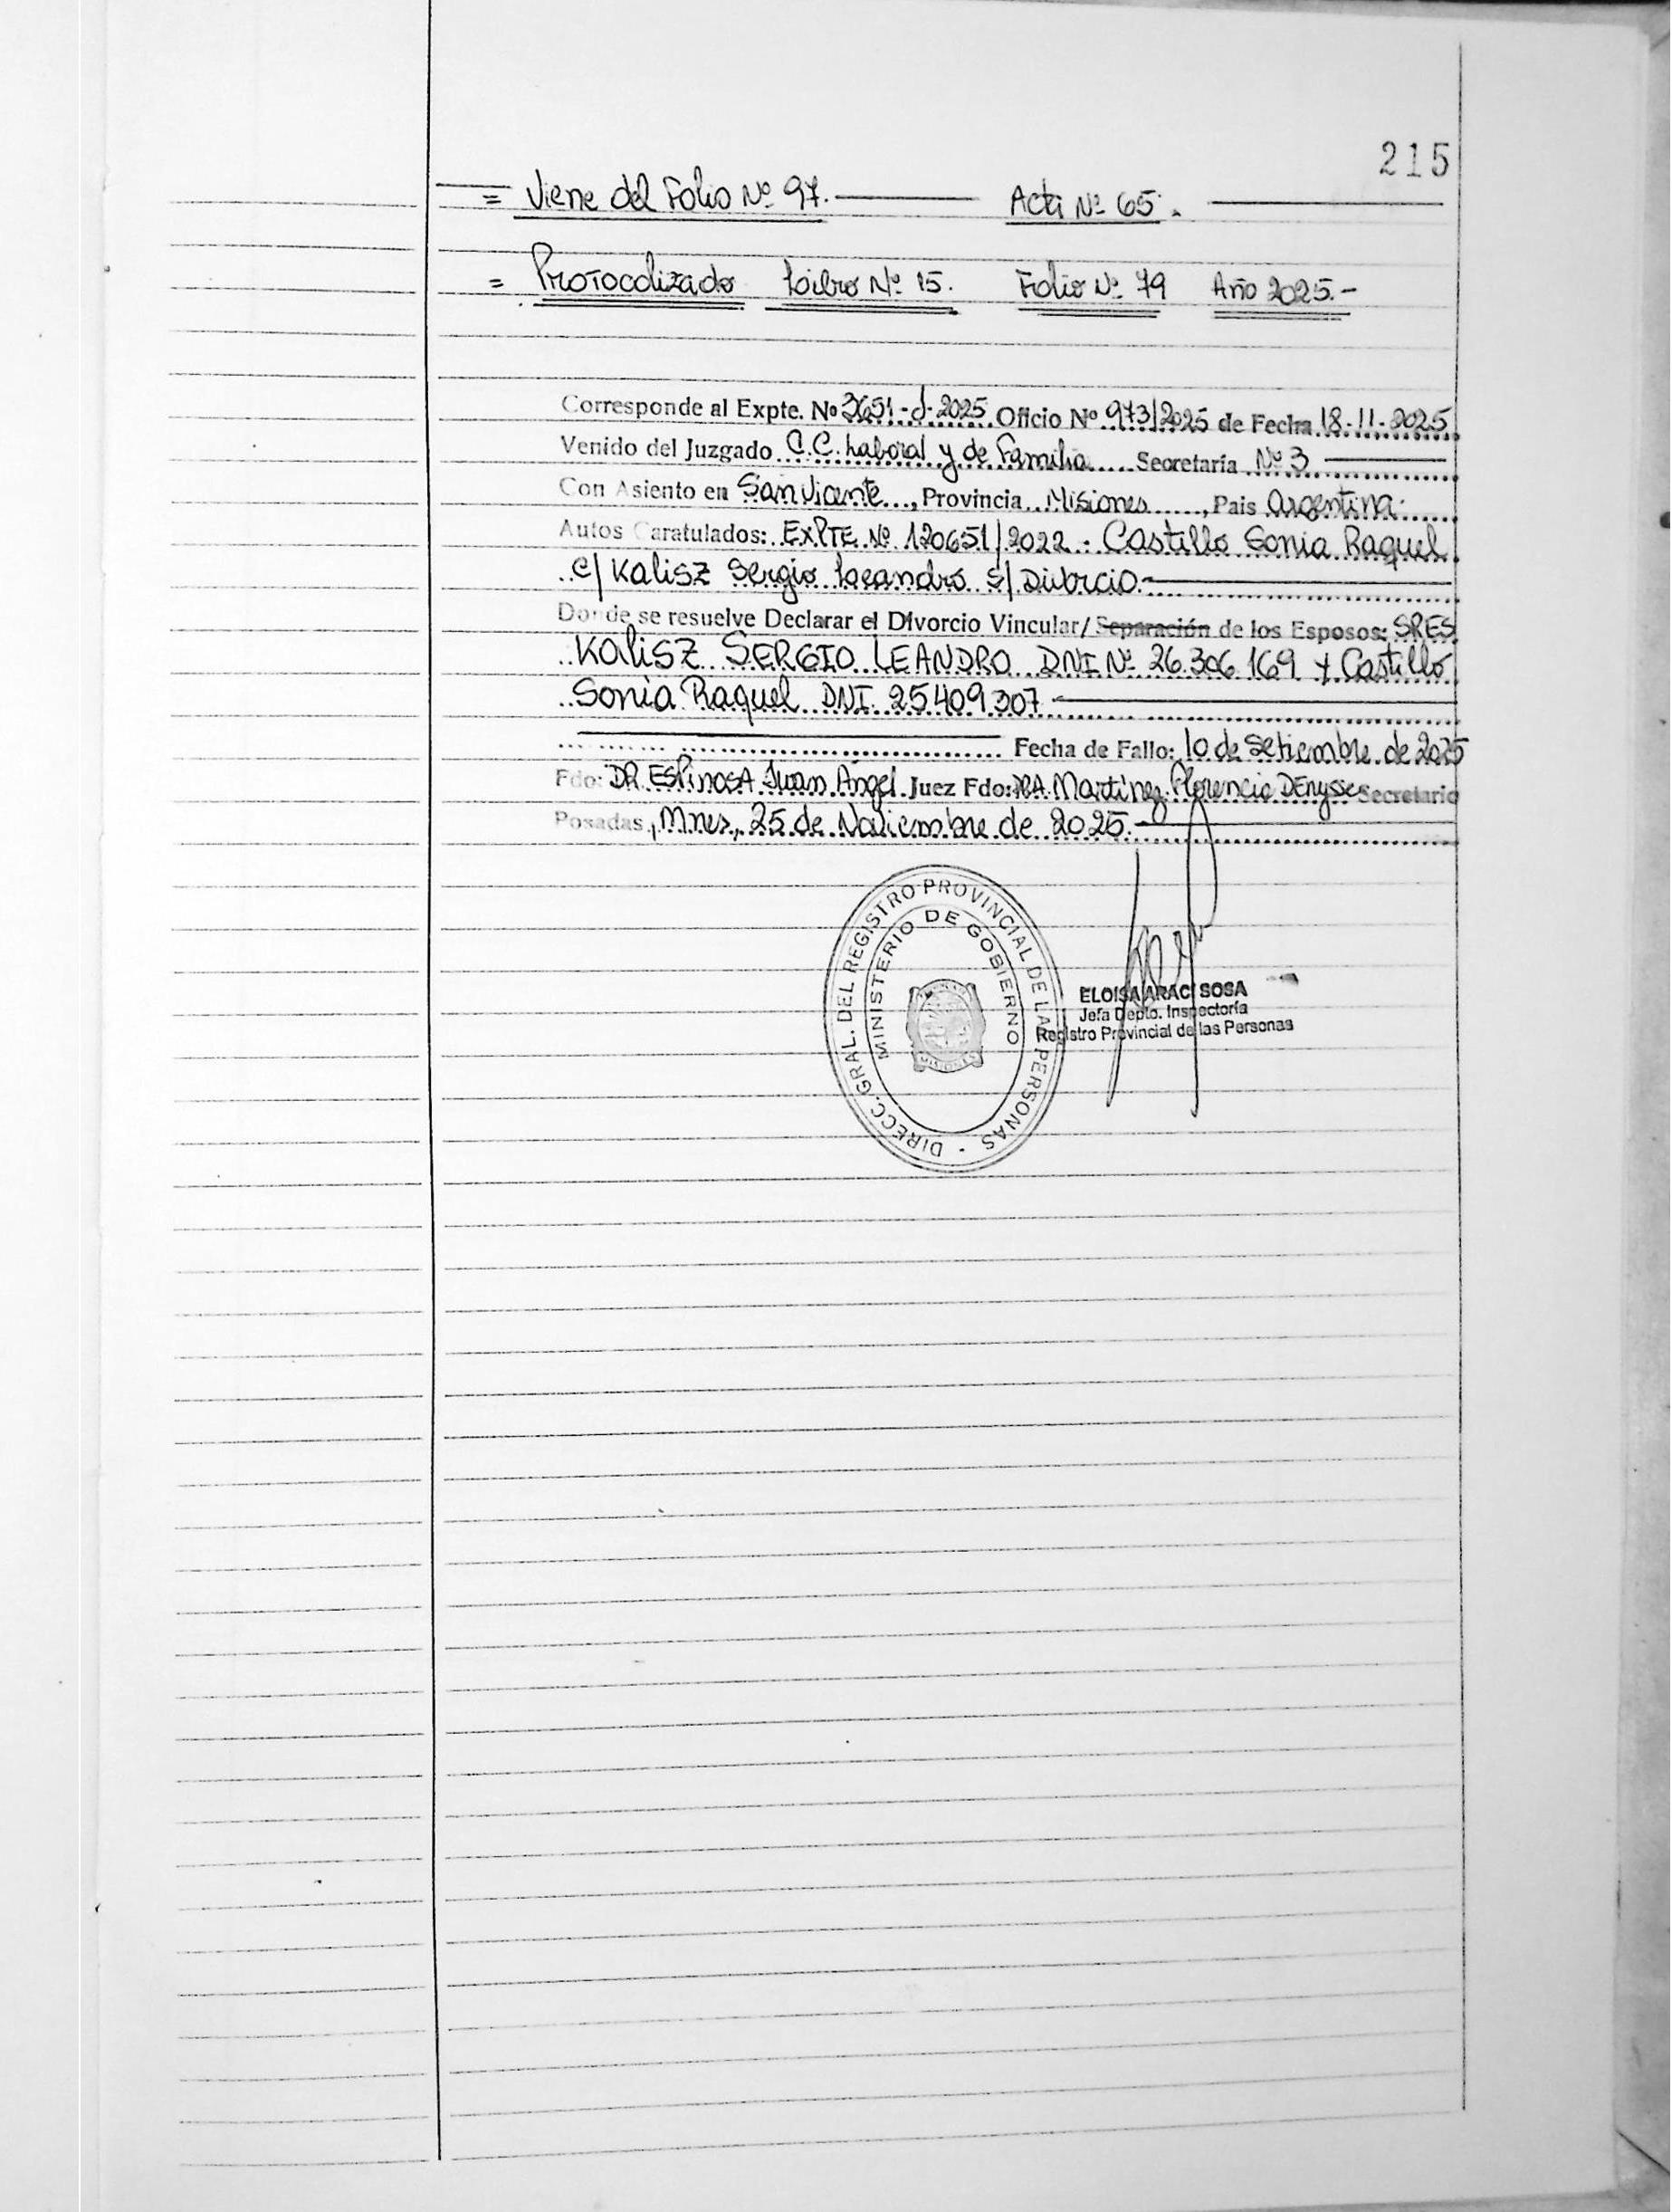 215
= Viene del Folio Nº 97. Acta Nº 65.
= Protocolizado Libro Nº 15. Folio Nº 79 Año 2025.-
Corresponde al Expte. Nº 3651-J-2025 Oficio Nº 973/2025 de Fecha 18-11-2025
Venido del Juzgado C.C. Laboral y de Familia Secretaría Nº 3
Con Asiento en San Vicente, Provincia Misiones, Pais Argentina.
Autos Caratulados: EXPTE Nº 120651/2022. Castillo Sonia Raquel
c/ Kalisz Sergio Leandro s/ Divorcio.-
Donde se resuelve Declarar el Divorcio Vincular/Separación de los Esposos: SRES
Kalisz SERGIO LEANDRO DNI Nº 26.306.169 y Castillo
Sonia Raquel DNI. 25409.307
Fecha de Fallo: 10 de Setiembre de 2025
Fdo: DR. ESPINOSA Juan Angel Juez Fdo: DRA. Martinez Florencia DEnysse Secretario
Posadas, Mnes, 25 de Noviembre de 2025.
DIRECC. GRAL. DEL REGISTRO PROVINCIAL DE LAS PERSONAS
MINISTERIO DE GOBIERNO
ELOISA ARACI SOSA
Jefa Depto. Inspectoría
Registro Provincial de las Personas